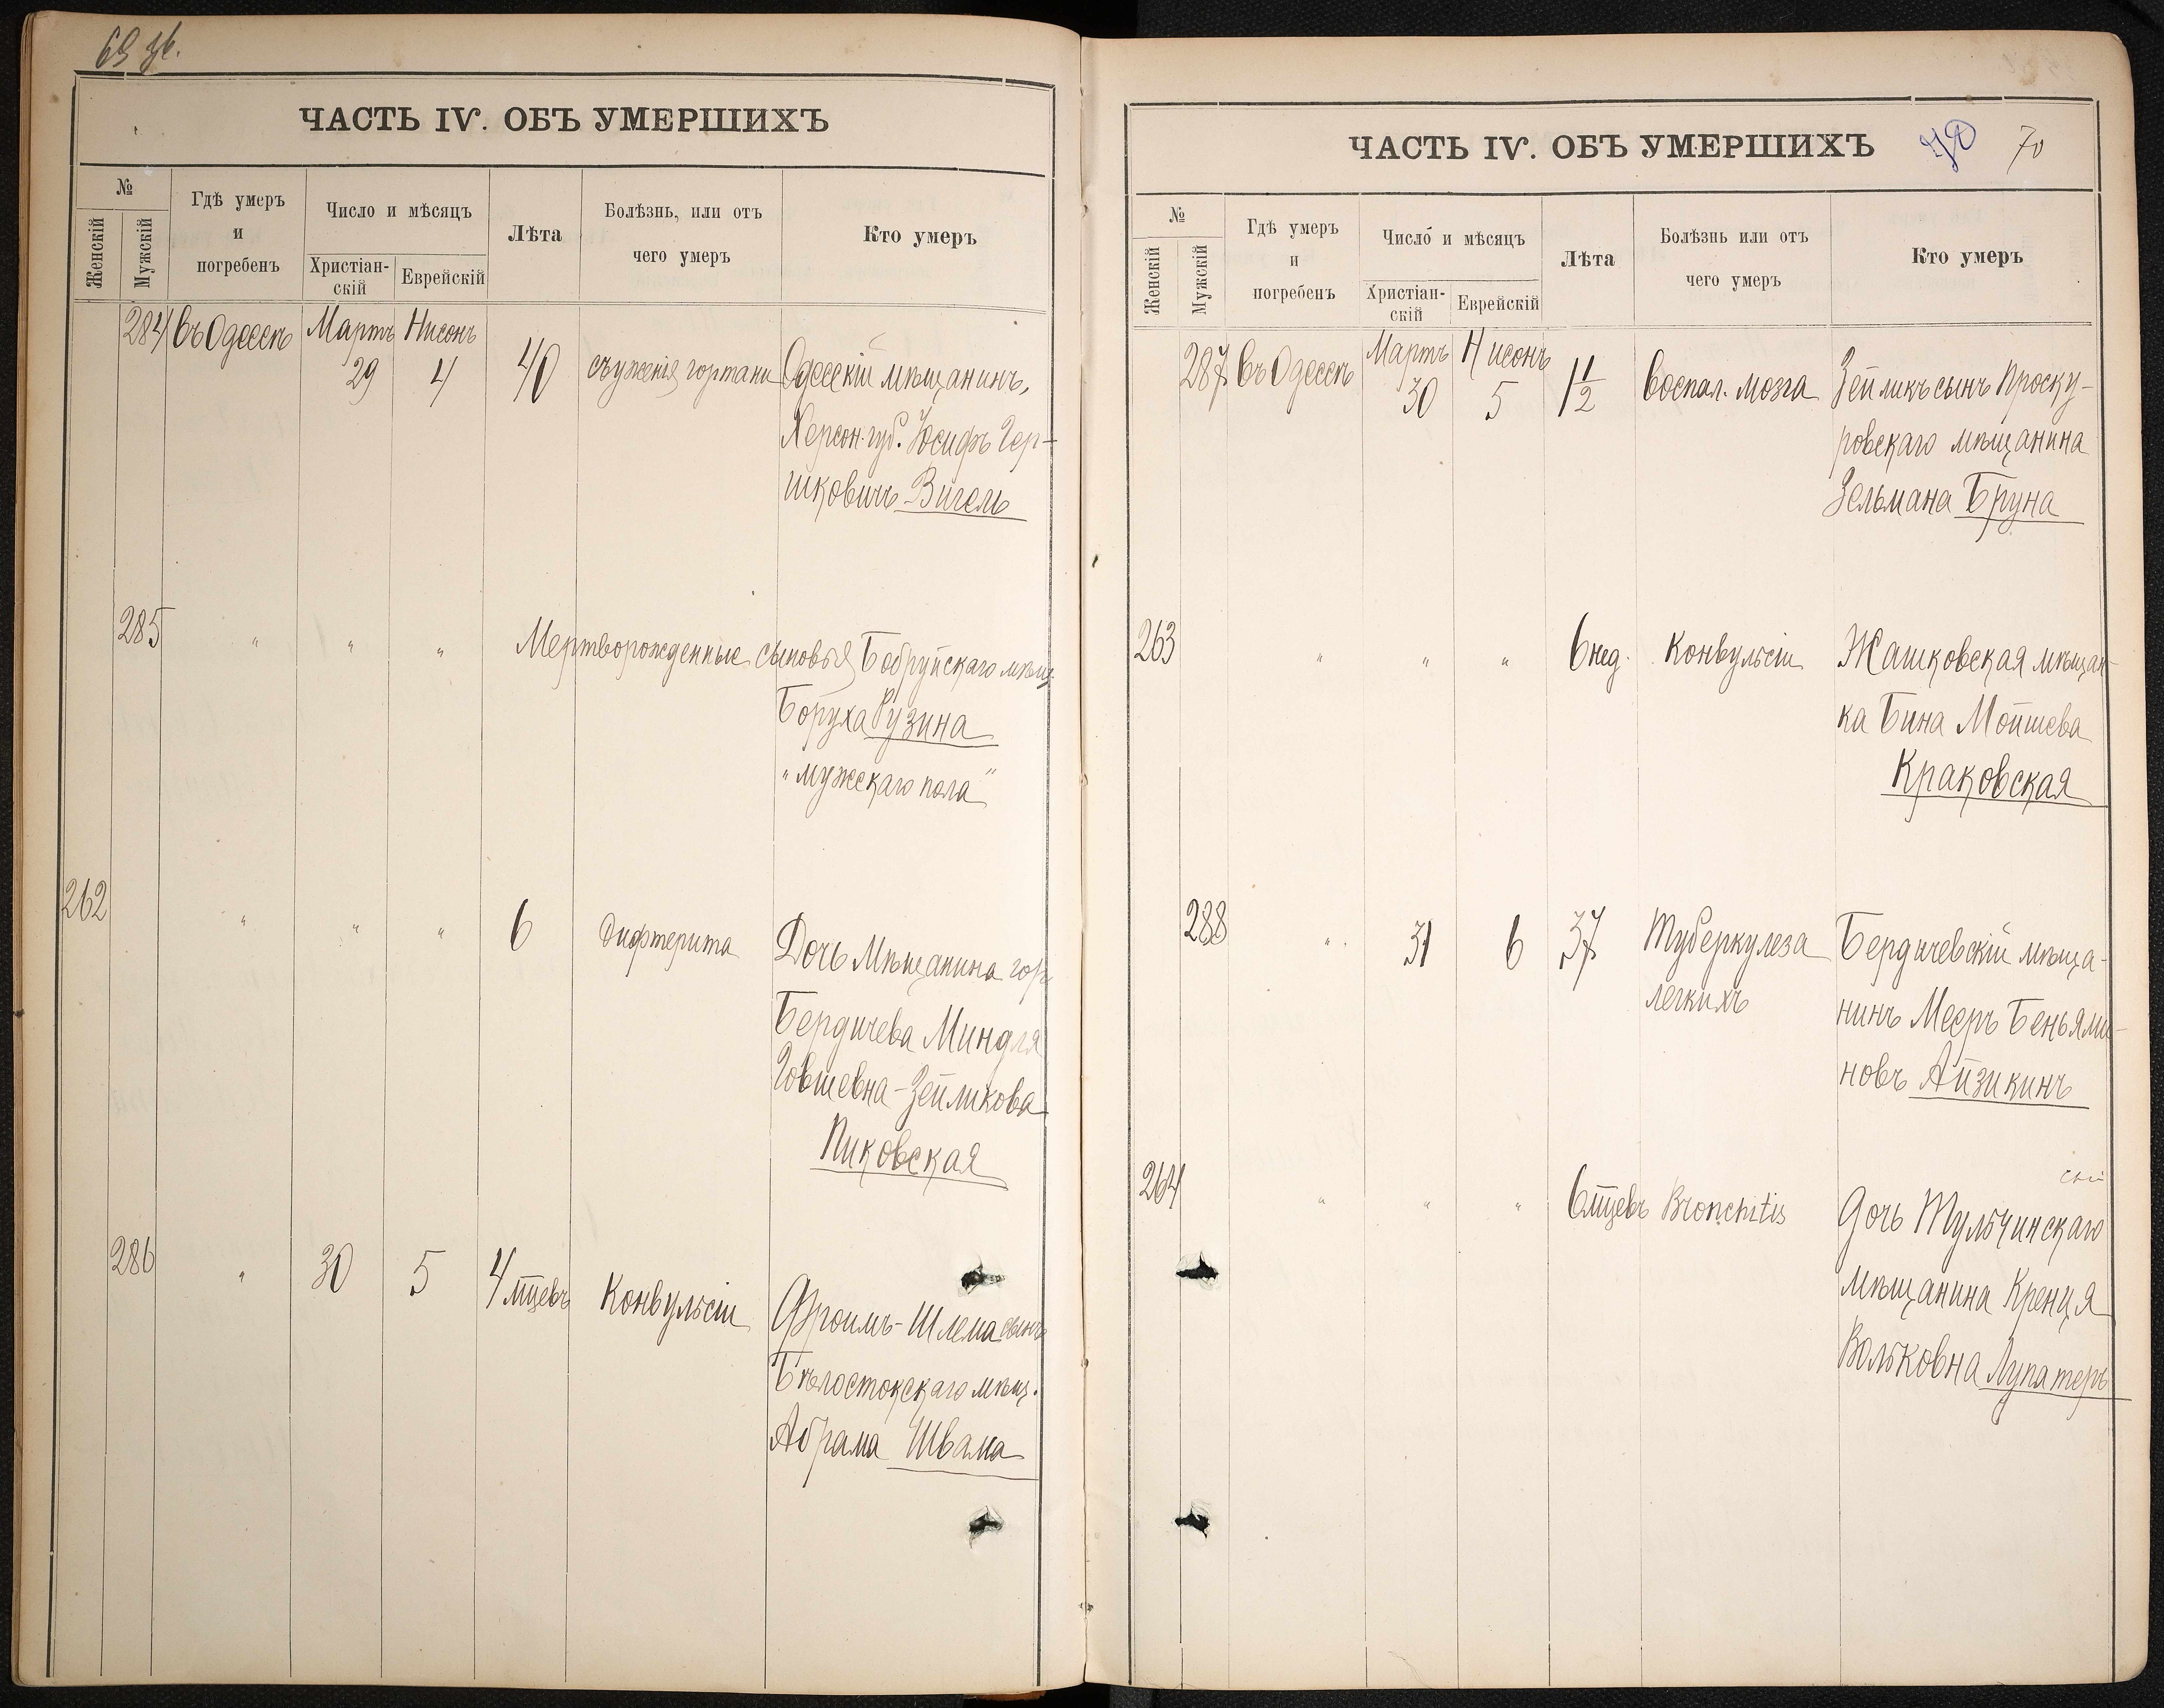 69 зв.
ЧАСТЬ IV. ОБЪ УМЕРШИХЪ
№
Женскій
Мужскій
Гдѣ умеръ
и
погребенъ
Число и мѣсяцъ
Христіан-
скій
Еврейскій
Лѣта
Болѣзнь, или отъ
чего умеръ
Кто умеръ
284 въ Одессѣ Мартъ Нисонъ
29 4 40 съуженія гортани Одесскій мѣщанинъ,
Херсон. губ. Іосифъ Гер-
шковичъ Вигель
285 " " " Мертворожденные сыновья Бобруйскаго мѣщ.
Боруха Рузина
"мужскаго пола"
262 " " " 6 Дифтерита Дочь Мѣщанина гор.
Бердичева Миндля
Іовшевна-Зейликова
Пиковская
286 " 30 5 4 мцевъ Конвульсіи Фроимъ-Шлема сынъ
Бѣлостокскаго мѣщ.
Абрама Швама
ЧАСТЬ IV. ОБЪ УМЕРШИХЪ
70 70
№
Женскій
Мужскій
Гдѣ умеръ
и
погребенъ
Число и мѣсяцъ
Христіан-
скій
Еврейскій
Лѣта
Болѣзнь или отъ
чего умеръ
Кто умеръ
287 въ Одессѣ Мартъ Нисонъ
30 5 1½ Воспал. мозга Зейликъ сынъ Проску-
ровскаго мѣщанина
Зельмана Бруна
263 " " " 6 нед. Конвульсіи Жашковская мѣщан-
ка Бина Мойшева
Краковская
288 " 31 6 37 Туберкулеза Бердичевскій мѣща-
легкихъ нинъ Мееръ Беньями-
новъ Айзикинъ
264 " " " 6 мцевъ Bronchitis Дочь Тульчинскаго
мѣщанина Кренця
Вольковна Лупатеръ